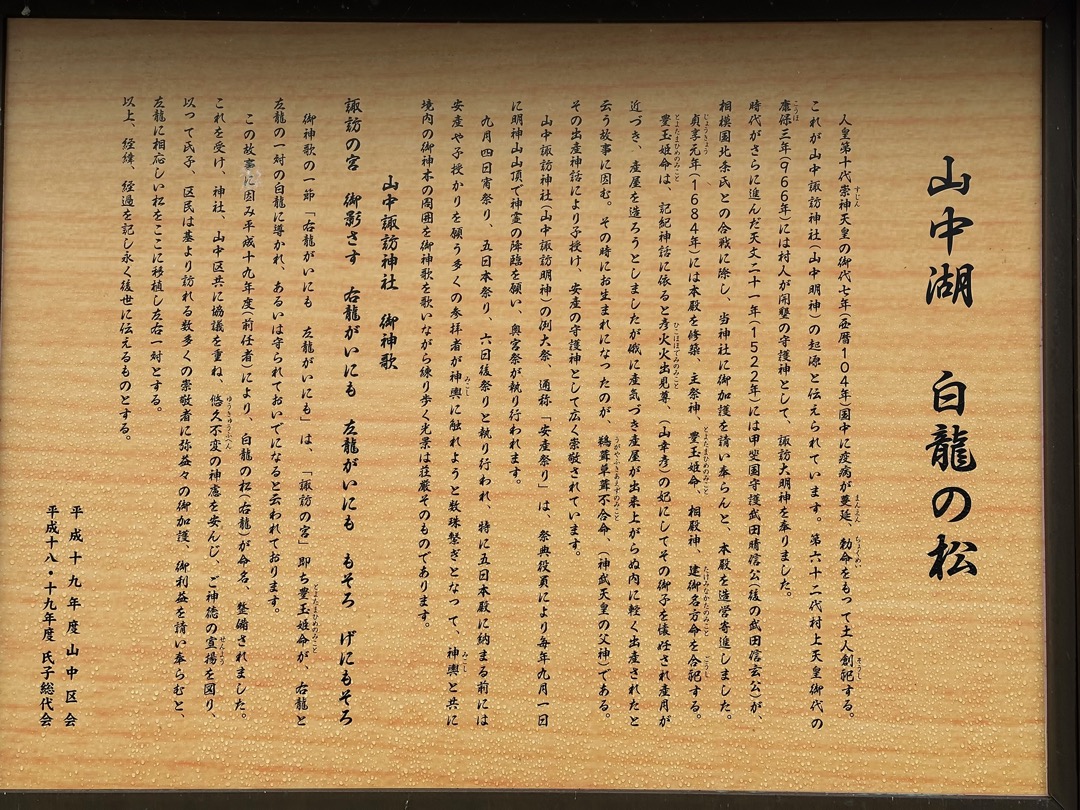 山中湖 白龍の松
人皇第十代崇神天皇の御代七年(西暦104年)国中に疫病が蔓延、勅命をもって土人創祀する。
これが山中諏訪神社(山中明神)の起源と伝えられています。第六十二代村上天皇御代の
康保三年(966年)には村人が開墾の守護神として、諏訪大明神を奉りました。
時代がさらに進んだ天文二十一年(1522年)には甲斐国守護武田晴信公(後の武田信玄公)が、
相模国北条氏との合戦に際し、当神社に御加護を請い奉らんと、本殿を造営寄進しました。
貞享元年(1684年)には本殿を修築、主祭神、豊玉姫命、相殿神、建御名方命を合祀する。
豊玉姫命は、記紀神話に依ると彦火火出見尊、(山幸彦)の妃にしてその御子を懐妊され産月が
近づき、産屋を造ろうとしましたが俄に産気づき産屋が出来上がらぬ内に軽く出産されたと
云う故事に因む。その時にお生まれになったのが、鵜葺草葺不合命、(神武天皇の父神)である。
その出産神話により子授け、安産の守護神として広く崇敬されています。
山中諏訪神社(山中諏訪明神)の例大祭、通称「安産祭り」は、祭典役員により毎年九月一日
に明神山山頂で神霊の降臨を願い、奥宮祭が執り行われます。
九月四日宵祭り、五日本祭り、六日後祭りと執り行われ、特に五日本殿に納まる前には
安産や子授かりを願う多くの参拝者が神輿に触れようと数珠繋ぎとなって、神輿と共に
境内の御神木の周囲を御神歌を歌いながら練り歩く光景は荘厳そのものであります。
山中諏訪神社 御神歌
諏訪の宮 御影さす 右龍がいにも 左龍がいにも もそろ げにもそろ
御神歌の一節「右龍がいにも 左龍がいにも」は、「諏訪の宮」即ち豊玉姫命が、右龍と
左龍の一対の白龍に導かれ、あるいは守られておいでになると云われております。
この故事に因み平成十九年度(前任者)により、白龍の松(右龍)が命名、整備されました。
これを受け、神社、山中区共に協議を重ね、悠久不変の神慮を安んじ、ご神徳の宣揚を図り、
以つて氏子、区民は基より訪れる数多くの崇敬者に弥益々の御加護、御利益を請い奉らむと、
左龍に相応しい松をここに移植し左右一対とする。
以上、経緯、経過を記し永く後世に伝えるものとする。
平成十九年度山中区会
平成十八・十九年度氏子総代会